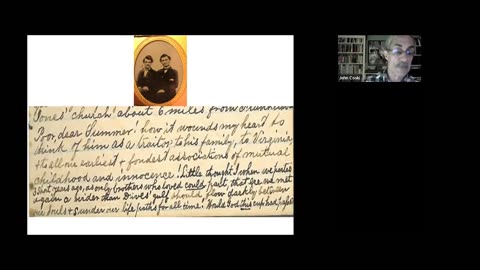 Jones' church, about 6 miles from
Poor, dear Summer! how it wounds my heart to
think of him as a traitor to his family, to Virginia,
& to all our earliest & fondest associations of mutual
childhood and innocence! Little thought I when we parted
years ago, as only brothers who loved could part, that
again a wider than Dives' gulf should flow darkly between
our souls & sunder our life paths for all time! Would God this cup had
John Coski